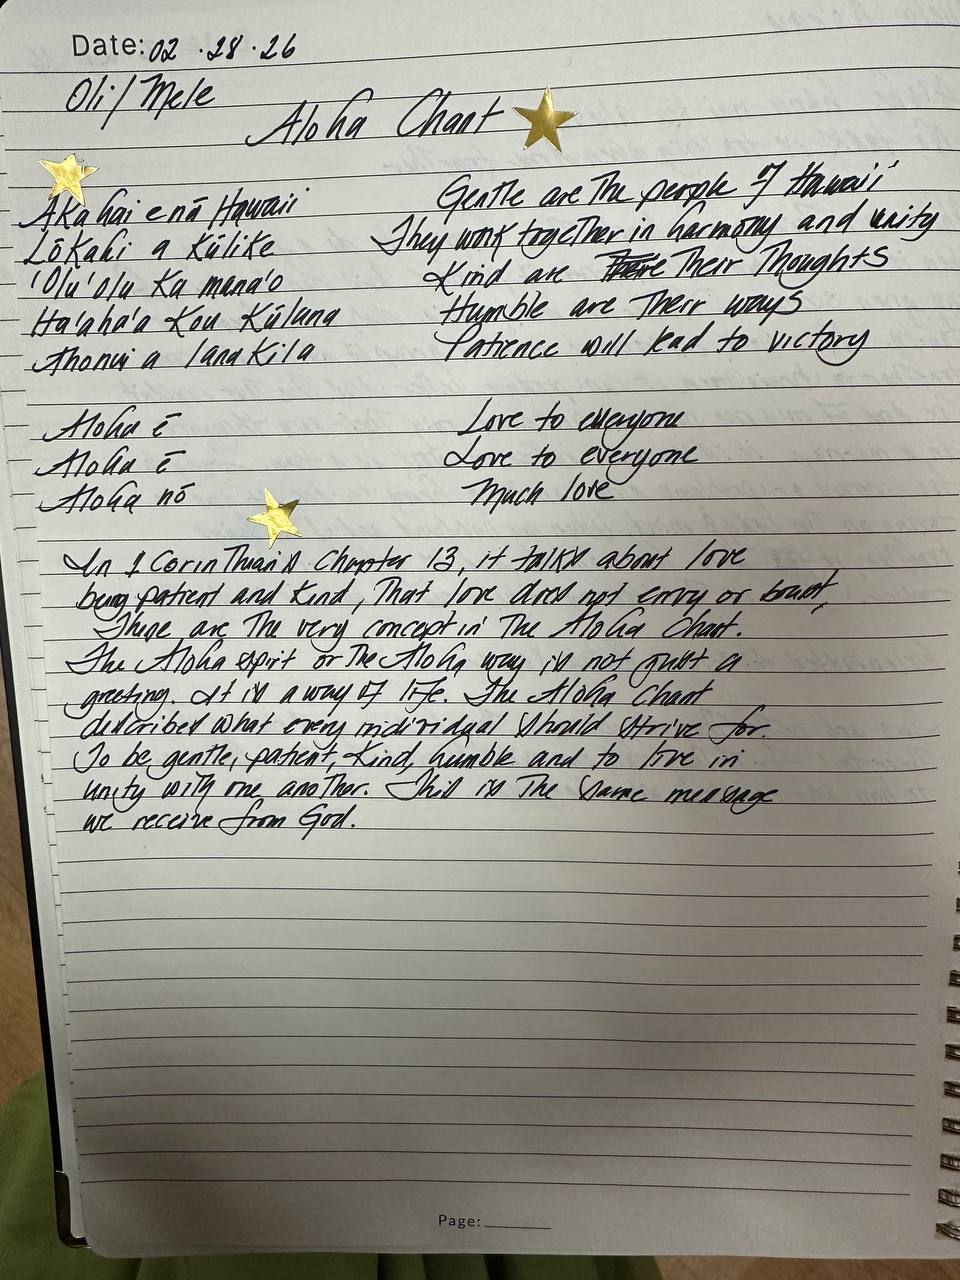 Date: 02 .28.26
Oli/Mele
Aloha Chant
Akahai e nā Hawaii
Gentle are The people of Hawai'i
Lōkahi a Kūlike
They work together in harmony and unity
'Olu'olu Ka mana'o
Kind are Their Thoughts
Ha'aha'a Kou Kūlana
Humble are Their ways
Ahonui a lanakila
Patience will lead to victory
Aloha ē
Love to everyone
Aloha ē
Love to everyone
Aloha nō
Much love
In 1 Corinthians Chapter 13, it talks about love
being patient and kind, That love does not envy or boast,
These are The very concept in The Aloha Chant.
The Aloha spirit or The Aloha way is not just a
greeting. It is a way of life. The Aloha Chant
describes what every individual should strive for.
To be gentle, patient, kind, humble and to live in
unity with one another. This is The same message
we receive from God.
Page: